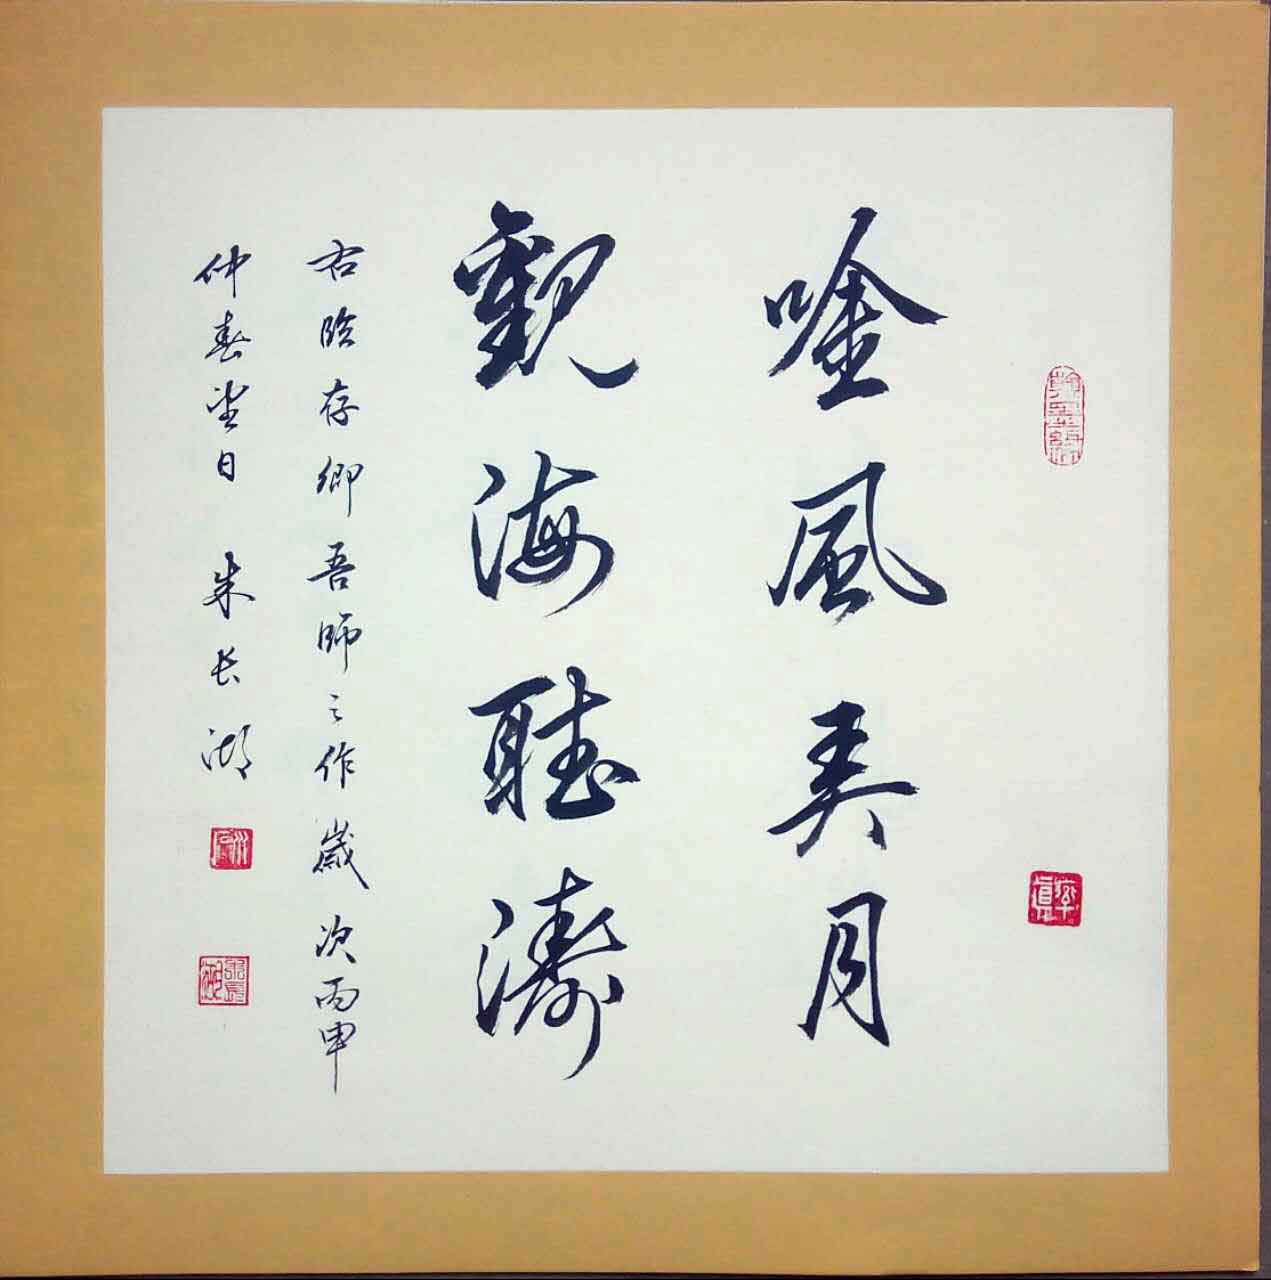 唫風弄月
觀海聽濤
右临存卿吾師之作歲次丙申
仲春望日 朱长湖
率真